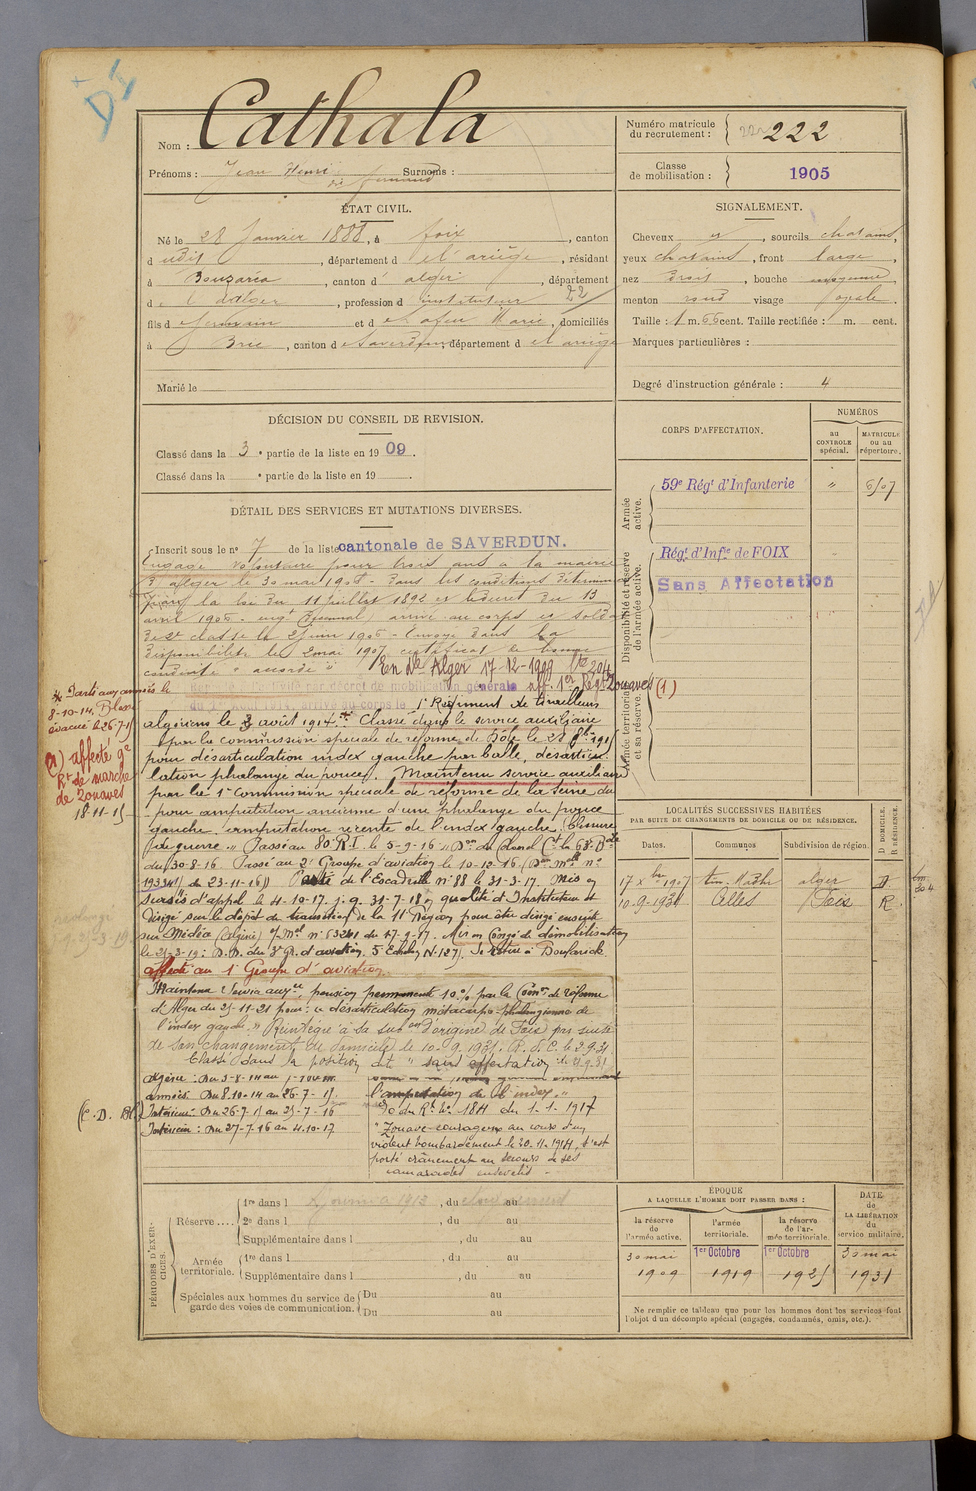 Nom : Cathala
Prénoms : Jean Henri Surnoms :
dit Fernand
Numéro matricule du recrutement : 222
Classe de mobilisation : 1905
ÉTAT CIVIL.
Né le 28 Janvier 1888, à foix, canton
d udit, département d e l'ariège, résidant
à Bouzaréa, canton d' alger, département
d e l'alger, profession d' instituteur 22
fils d e Germain et d e Lafou Marie, domiciliés
à Brie, canton d e Saverdun, département d e l'ariège
Marié le
SIGNALEMENT.
Cheveux et, sourcils chatains,
yeux chatains, front large,
nez droit, bouche moyenne,
menton rond visage ovale
Taille : 1 m. 66 cent. Taille rectifiée : m. cent.
Marques particulières :
Degré d'instruction générale : 4
DÉCISION DU CONSEIL DE REVISION.
Classé dans la 3e partie de la liste en 1909.
Classé dans la e partie de la liste en 19 .
DÉTAIL DES SERVICES ET MUTATIONS DIVERSES.
Inscrit sous le n° 7 de la liste cantonale de SAVERDUN.
Engagé volontaire pour trois ans à la mairie
d'alger le 30 mai 1906 - dans les conditions déterminées
par la loi du 11 juillet 1892 et le décret du 13
avril 1906 - arrivé au corps et soldat
de 2e classe le 2 juin 1906 - Envoyé dans la
disponibilité le 2 mai 1907 certificat de bonne
conduite " accordé "
En dle Alger 17-12-1909 Ve 204
de mobilisation générale aff. 1er Régt Zouaves (1)
du 1er Août 1914, arrivé au corps le 1er Régiment de tirailleurs
algériens le 3 août 1914. Classé dans le service auxiliaire
par la commission spéciale de réforme de Dôle le 28 8bre 1915
pour désarticulation index gauche par balle, désarticu-
lation phalange du pouce). Maintenu service auxiliaire
par la 1e commission spéciale de réforme de la Seine du
pour amputation ancienne d'une phalange du pouce
gauche, amputation récente de l'index gauche, blessure
de guerre. " Passé au 80e R.I. le 5-9-16
du 30-8-16. Passé au 2e Groupe d'aviation le 10-12-16 (Don Mlle n°
193341) du 23-11-16) Passé de l'Escadrille n° 88 le 31-3-17 Mis en
sursis d'appel le 4-10-17. j.q. 31-7-18 en qualité d'Instituteur et
Dirigé sur le dépôt de transition de la 11e Région pour être dirigé ensuite
sur Médéa (Algérie) du 17-9-17. Mis en Congé de démobilisation
le 21-3-19 : D.D. du 3e Gr. d'aviation. 5e Echelon N. 127). Se retire à Boufarick
affecté au 1e Groupe d'aviation
Maintenu Service auxre, pension permanente 10% par la Common de réforme
d'Alger du 25-11-21 pour : " désarticulation métacarpo-phalangienne de
l'index gauche. " Réintégré à la subon d'origine de Foix par suite
de son changement de domicile le 10-9-1931. R.S.C. le 2.9.31
Classé dans la position dite " sans affectation
Algérie : Du 3-8-14 au
armées : Du 8.10-14 au 26-7-15
Intérieur : Du 26-7-15 au 25-7-16
Intérieur : Du 27-7-16 au 4.10-17
(C. D.
l'amputation de l'index "
du Rt N° 184 du 1-1-1917
" Zouave courageux au cours d'un
violent bombardement le 20-11-1914, s'est
porté crânement au secours de ses
camarades ensevelis -
Parti aux armées le
8-10-14. Blessé
évacué le 26-7-15
(1) affecté 9e
Rt de marche
de Zouaves
18-11-15
CORPS D'AFFECTATION.
NUMÉROS
au CONTROLE spécial.
MATRICULE ou au répertoire.
Armée active.
59e Régt d'Infanterie " 6507
Disponibilité et réserve de l'armée active.
Régt d'Infie de FOIX
Sans Affectation
Armée territoriale et sa réserve.
LOCALITÉS SUCCESSIVES HABITÉES
PAR SUITE DE CHANGEMENTS DE DOMICILE OU DE RÉSIDENCE.
Dates. Communes. Subdivision de région. D DOMICILE. R RÉSIDENCE.
17 xbre 1907 alger D
10-9-1931 Celles Foix R
PÉRIODES D'EXERCICES.
Réserve ....
1re dans l , du au
2e dans l , du au
Supplémentaire dans l , du au
Armée territoriale.
1re dans l du au
Supplémentaire dans l , du au
Spéciales aux hommes du service de garde des voies de communication.
Du au
Du au
ÉPOQUE
A LAQUELLE L'HOMME DOIT PASSER DANS :
la réserve de l'armée active.
l'armée territoriale.
la réserve de l'armée territoriale.
DATE de LA LIBÉRATION du service militaire.
30 mai 1909
1er Octobre 1919
1er Octobre 1925
30 mai 1931
Ne remplir ce tableau que pour les hommes dont les services font
l'objet d'un décompte spécial (engagés, condamnés, omis, etc.).